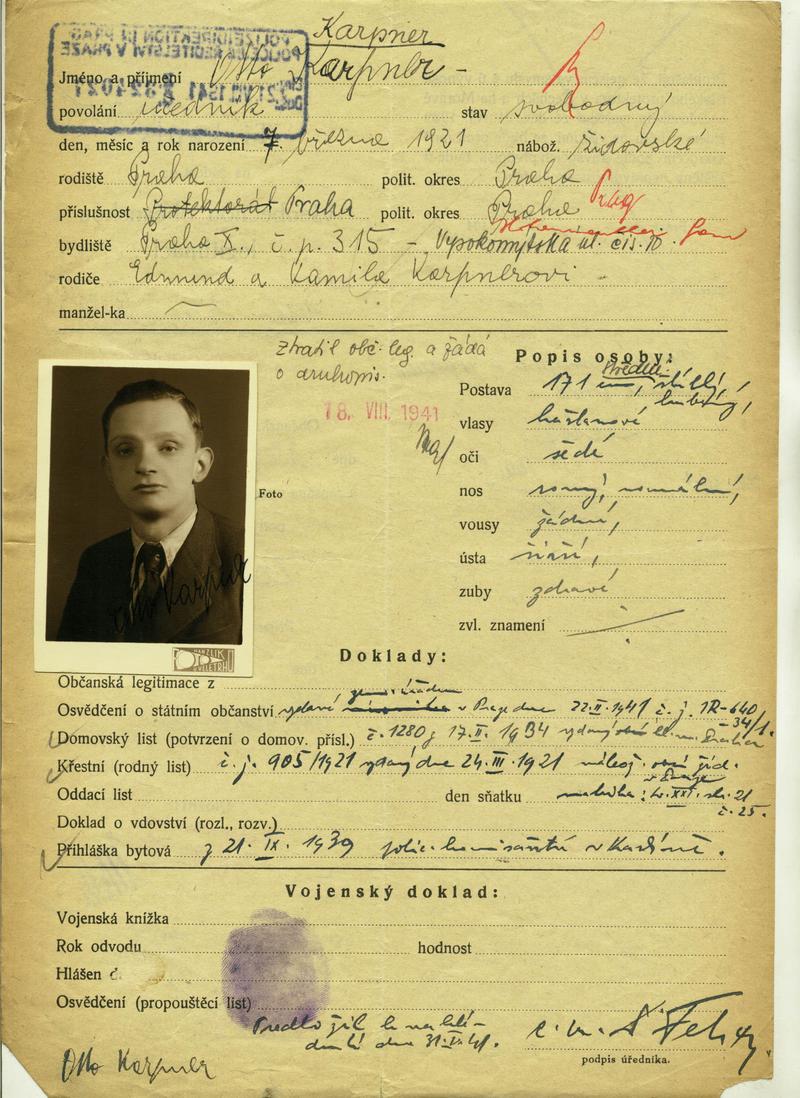 Karpner
Jméno a příjmení Otto Karpner -
povolání úředník stav svobodný
den, měsíc a rok narození 7. března 1921 nábož. židovské
rodiště Praha polit. okres Praha
příslušnost Protektorát Praha polit. okres Praha Prag
bydliště Praha X., č.p. 315 - Vysokomýtská ul. čís. 10.
rodiče Edmund a Kamila Karpnerovi
manžel-ka
Ztratil obč. leg. a žádá
o druhopis.
18. VIII. 1941
Popis osoby:
Postava 171 cm, štíhlý,
vlasy kaštanové
oči šedé
nos rovný, normální,
vousy žádné,
ústa širší,
zuby zdravé
zvl. znamení
Foto
Otto Karpner
Doklady:
Občanská legitimace z
Osvědčení o státním občanství vydané v Praze dne 22.II.1941 č. j. 1R-640,
-34/1.
Domovský list (potvrzení o domov. přísl.) č. 1280 z 17.II. 1934
Křestní (rodný list) č. j. 905/1921 vydaný dne 24.III.1921 nábož. obcí žid.
v Praze
Oddací list den sňatku matrika: XXI. str. 21
č. 25.
Doklad o vdovství (rozl., rozv.)
Přihláška bytová z 21. IX. 1939 polic. komisařství v Karlíně.
Vojenský doklad:
Vojenská knížka
Rok odvodu hodnost
Hlášen č.
Osvědčení (propouštěcí list)
podpis úředníka.
Otto Karpner